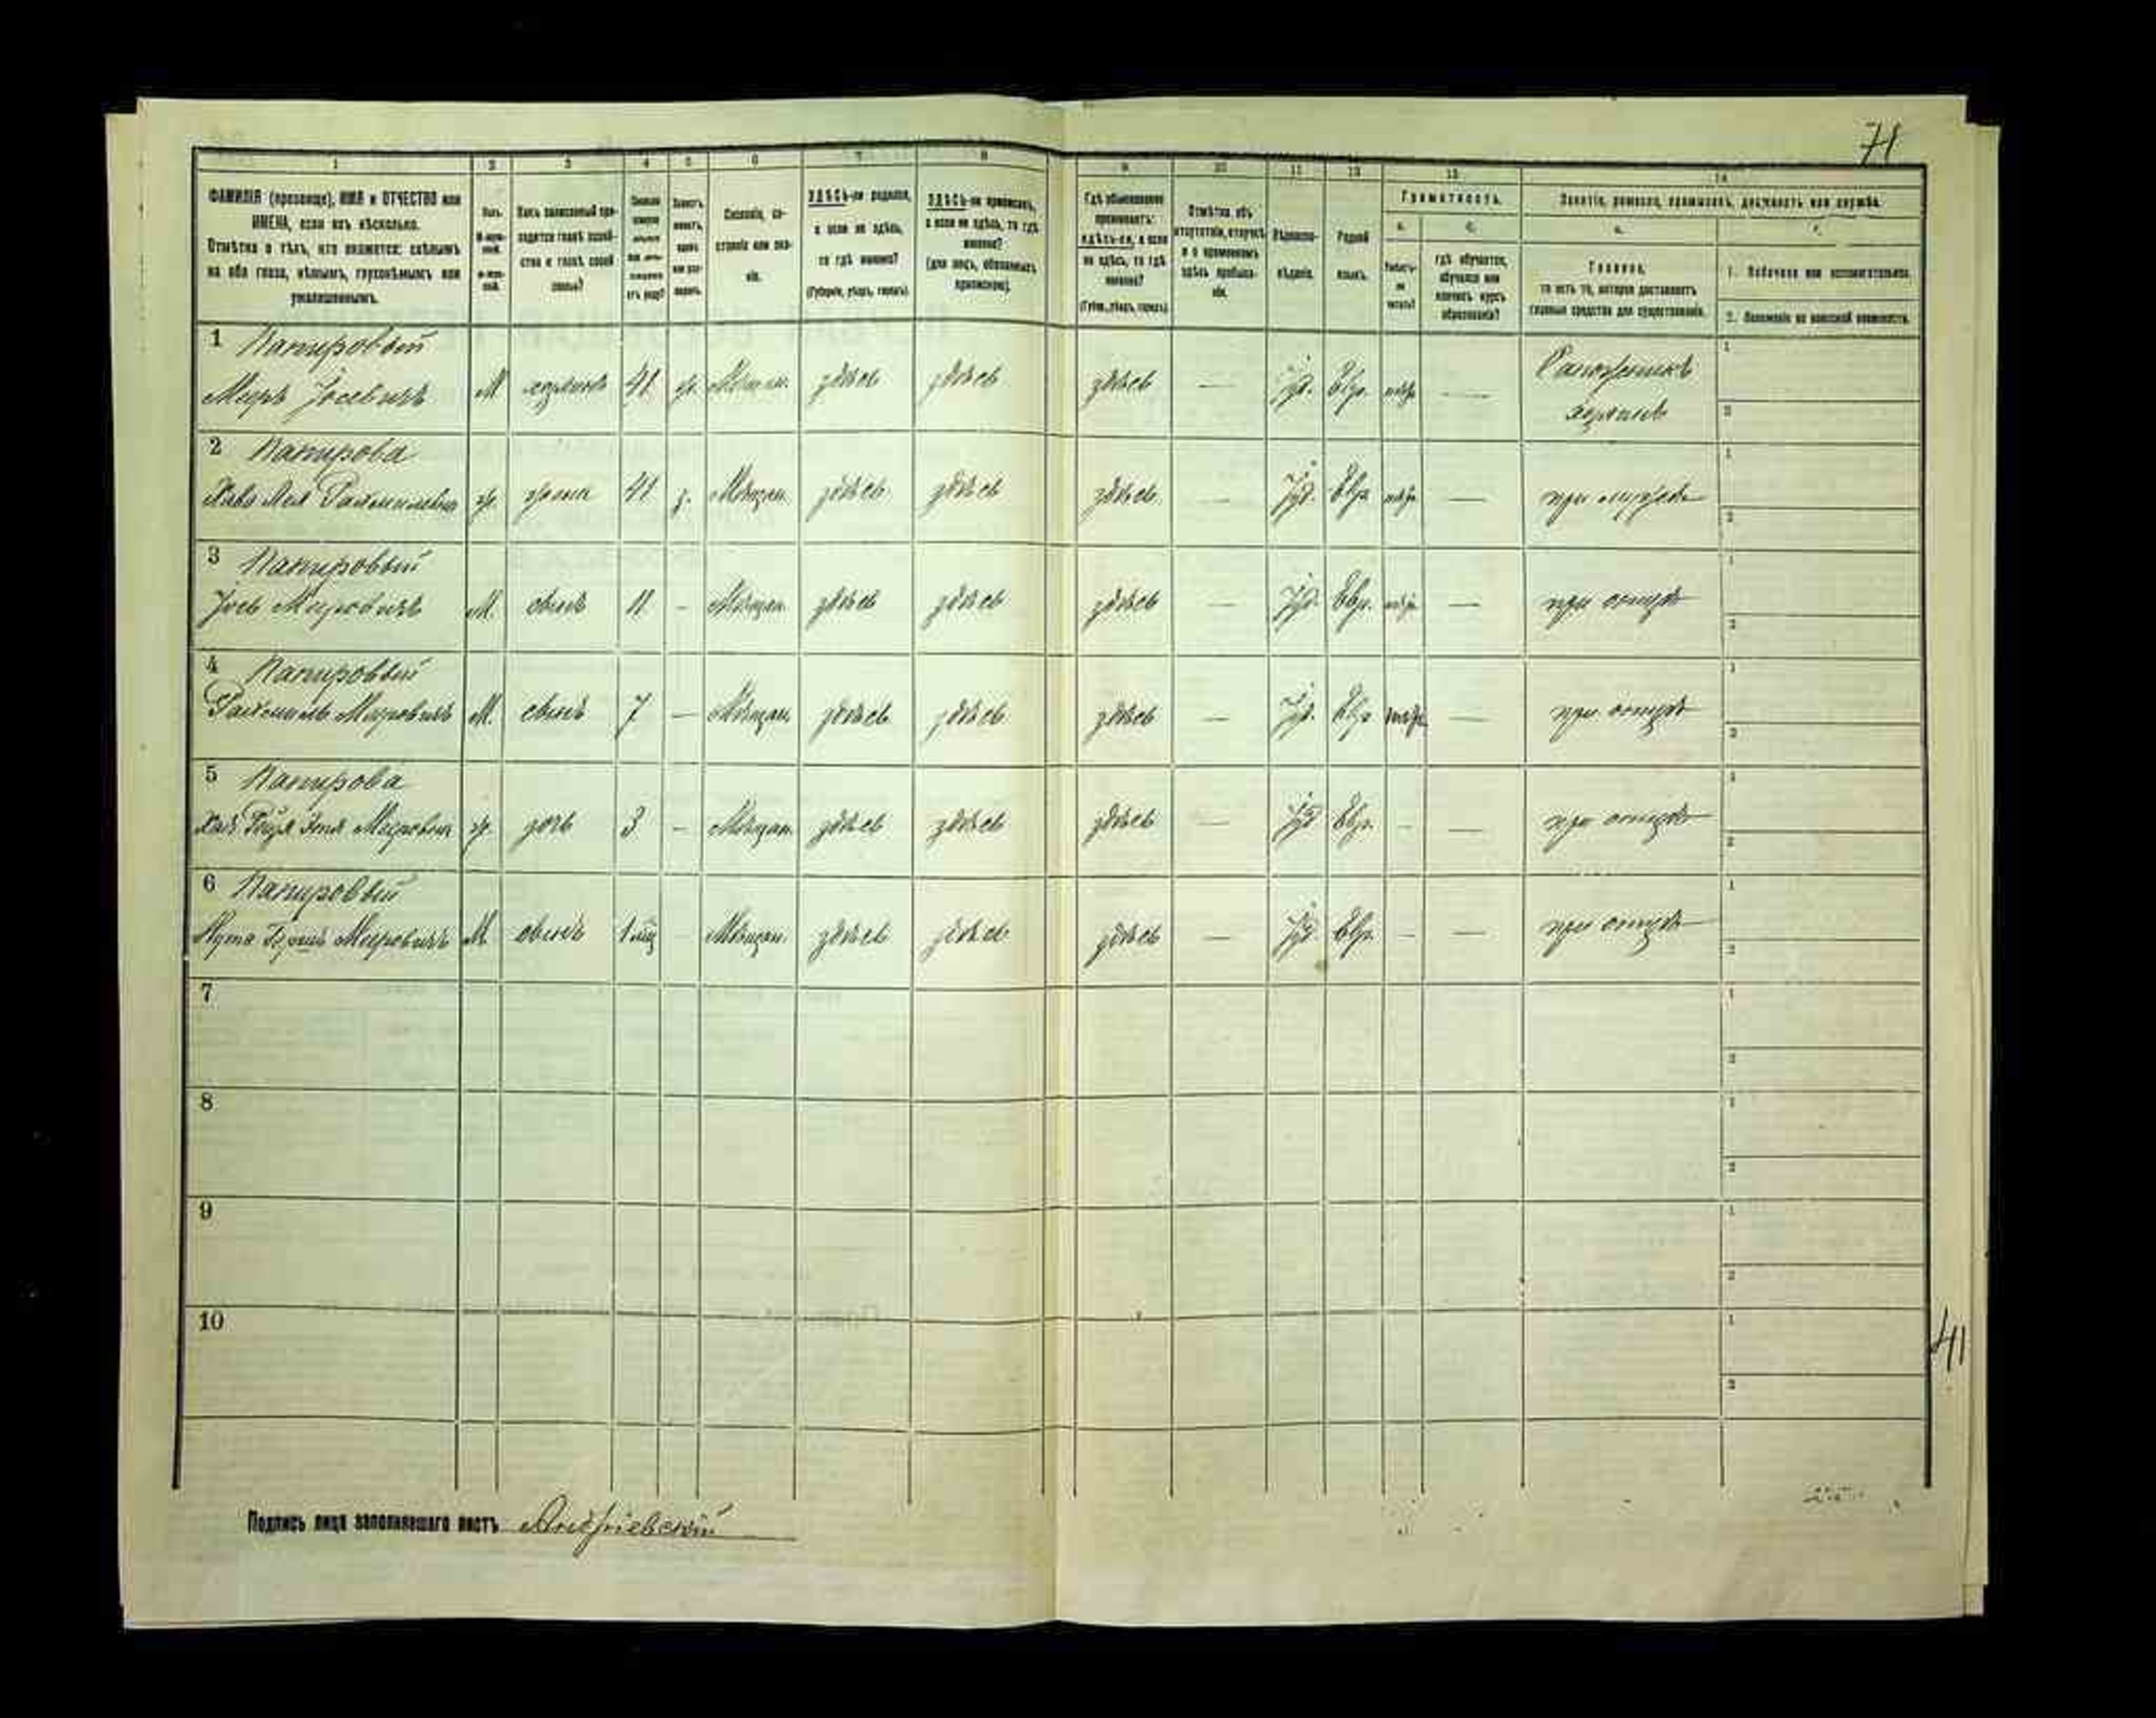 71
1 2 3 4 5 6 7 8 9 10 11 12 13 14
ФАМИЛІЯ (прозвище), ИМЯ и ОТЧЕСТВО или
ИМЕНА, если ихъ нѣсколько.
Отмѣтка о тѣхъ, кто окажется: слѣпымъ
на оба глаза, нѣмымъ, глухонѣмымъ или
умалишеннымъ.
Полъ.
Какъ записанный при-
ходится главѣ хозяй-
ства и главѣ своей
семьи?
Сословіе, со-
стояніе или зва-
ніе.
ЗДѢСЬ-ли родился,
а если не здѣсь,
то гдѣ именно?
(Губернія, уѣздъ, городъ).
ЗДѢСЬ-ли приписанъ,
а если не здѣсь, то гдѣ
именно?
(для лицъ, обязанныхъ
припискою).
Гдѣ обыкновенно
проживаетъ:
здѣсь-ли, а если
не здѣсь, то гдѣ
именно?
(Губ., уѣздъ, городъ).
Отмѣтка объ
отсутствіи, отлучкѣ
и о временномъ
здѣсь пребыва-
ніи.
Вѣроиспо-
вѣданіе.
Родной
языкъ.
Грамотность.
а. б.
Умѣетъ-
ли
читать?
гдѣ обучается,
обучался или
кончилъ курсъ
образованія?
Занятіе, ремесло, промыселъ, должность или служба.
Главное,
то есть то, которое доставляетъ
главныя средства для существованія.
1. Побочное или вспомогательное.
2. Положеніе по воинской повинности.
1 Папировый
Меиръ Іосевичъ М хозяинъ 41 ж. Мѣщан. здѣсь здѣсь здѣсь — Іуд. Евр. — Сапожникъ
хозяинъ
2 Папирова
Хава Лея ж. жена 41 з. Мѣщан. здѣсь здѣсь здѣсь — Іуд. Евр. — при мужѣ
3 Папировый
Іось Меировичъ М. сынъ 11 - Мѣщан. здѣсь здѣсь здѣсь — Іуд. Евр. — при отцѣ
4 Папировый
Рахмиль Меировичъ М. сынъ 7 — Мѣщан. здѣсь здѣсь здѣсь — Іуд. Евр. — при отцѣ
5 Папирова
Меировна ж. дочь 3 - Мѣщан. здѣсь здѣсь здѣсь — Іуд. Евр. - — при отцѣ
6 Папировый
Нута Гершъ Меировичъ М. сынъ 1 мѣц - Мѣщан. здѣсь здѣсь здѣсь — Іуд. Евр. - — при отцѣ
7
8
9
10
41
Подпись лица заполнявшаго листъ Андріевскій